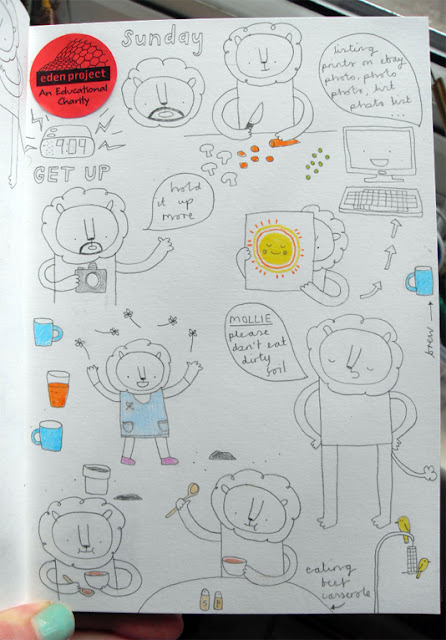 Sunday
eden project
An Educational
Charity
9:09
GET UP
listing
prints on ebay
photo, photo
photo, list
photo list
...
hold
it up
more
MOLLIE
please
don't eat
dirty
soil
brew →
S P
eating
beef
casserole